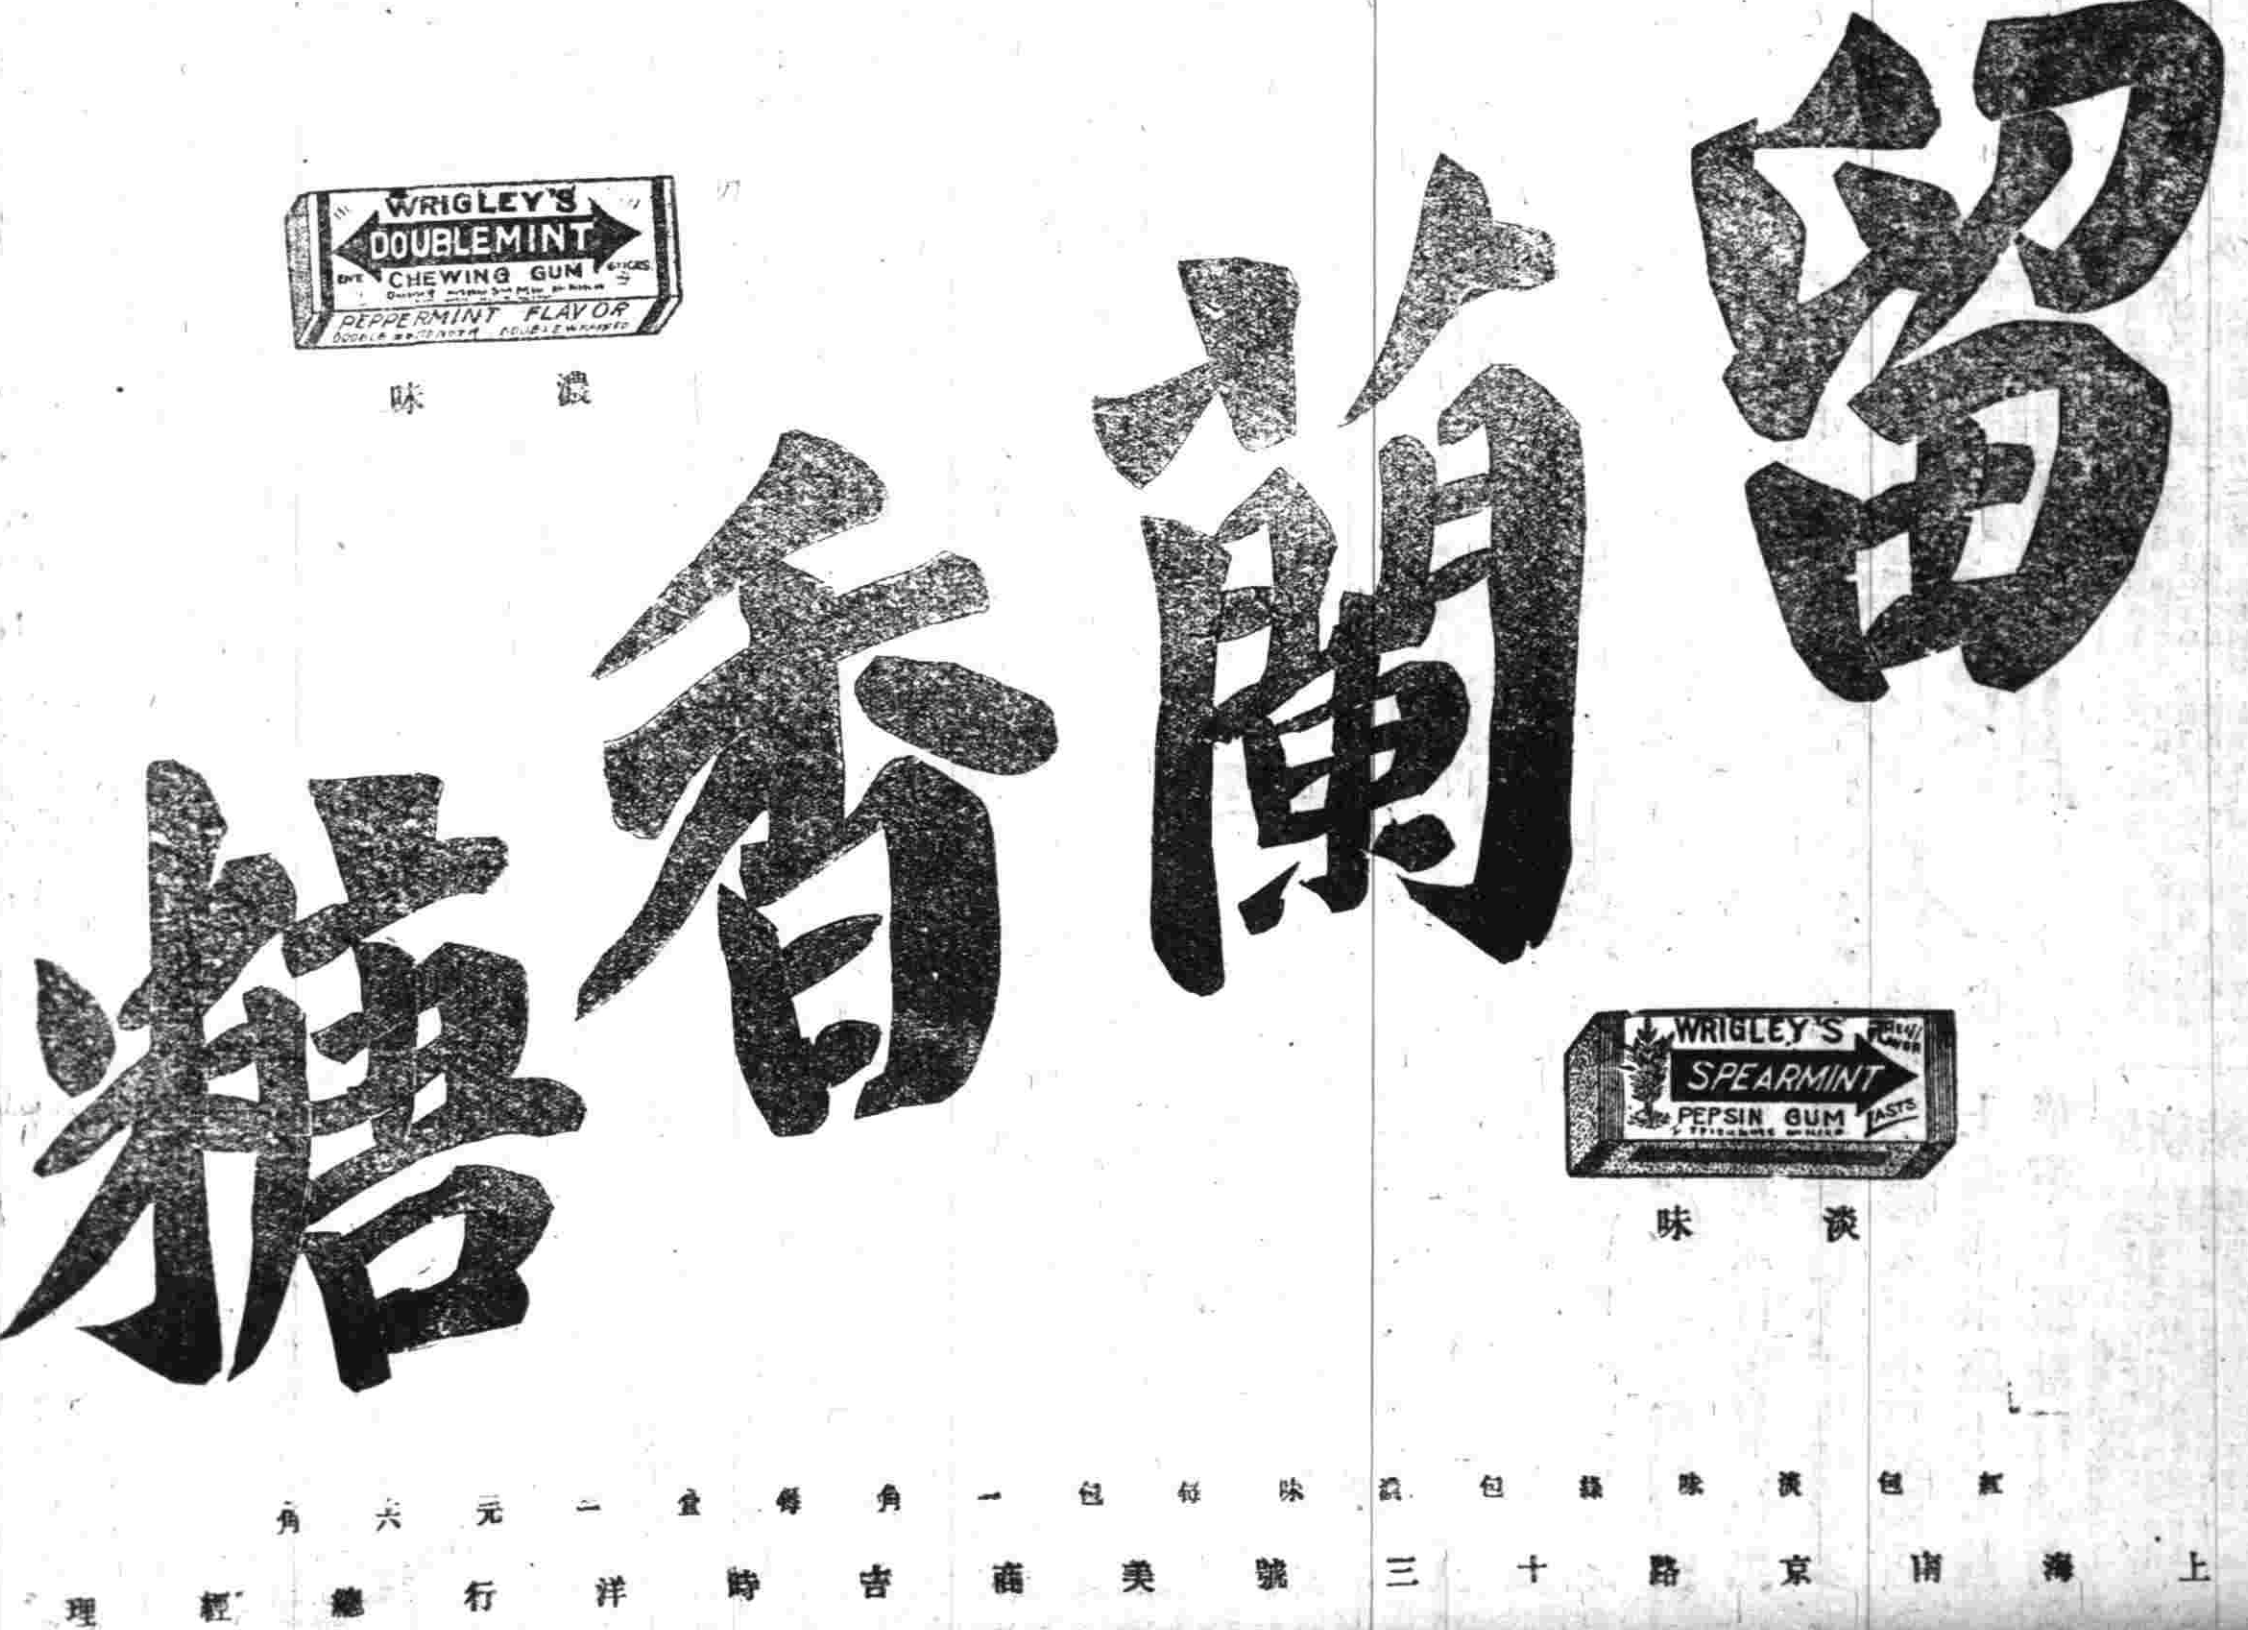 留蘭香糖
WRIGLEY'S
DOUBLEMINT
CHEWING GUM
PEPPERMINT FLAVOR
濃味
WRIGLEY'S
SPEARMINT
PEPSIN GUM
淡味
紅包淡味綠包濃味每包一角每盒二元六角
上海南京路十三號美商吉時洋行總經理